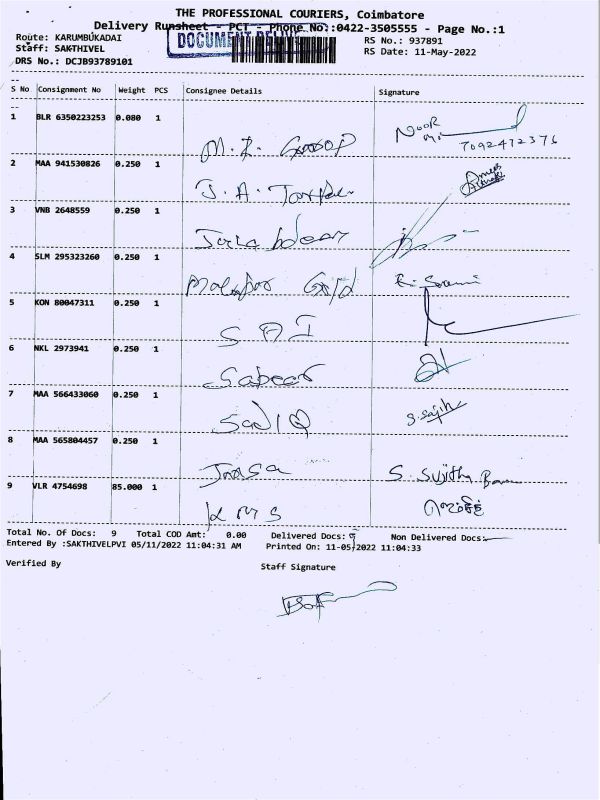 THE PROFESSIONAL COURIERS, Coimbatore
Delivery Runsheet - PCT - Phone No::0422-3505555 - Page No.:1
Route: KARUMBUKADAI RS No.: 937891
Staff: SAKTHIVEL RS Date: 11-May-2022
DRS No.: DCJB93789101
DOCUMENT
S No Consignment No Weight PCS Consignee Details Signature
1 BLR 6350223253 0.080 1 M. R. NOOR
7092472376
2 MAA 941530826 0.250 1 J. A.
3 VNB 2648559 0.250 1
4 SLM 295323260 0.250 1 Malabar Gold R.
5 KON 80047311 0.250 1 S A I
6 NKL 2973941 0.250 1 Sabeer
7 MAA 566433060 0.250 1 SadIQ S. Sajith
8 MAA 565804457 0.250 1 S. Sujitha
9 VLR 4754698 85.000 1 K M S
Total No. Of Docs: 9 Total COD Amt: 0.00 Delivered Docs: 9 Non Delivered Docs:
Entered By :SAKTHIVELPVI 05/11/2022 11:04:31 AM Printed On: 11-05-2022 11:04:33
Verified By Staff Signature